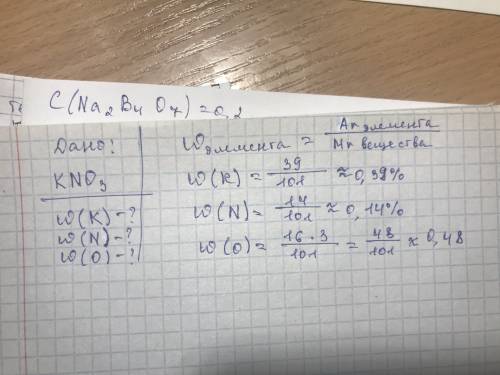 C(Na₂B₄O₇) = 0,2
Дано:
KNO₃
ω(K) - ?
ω(N) - ?
ω(O) - ?
ω элемента = Ar элемента / Mr вещества
ω(K) = 39 / 101 ≈ 0,39%
ω(N) = 14 / 101 ≈ 0,14%
ω(O) = 16·3 / 101 = 48 / 101 ≈ 0,48